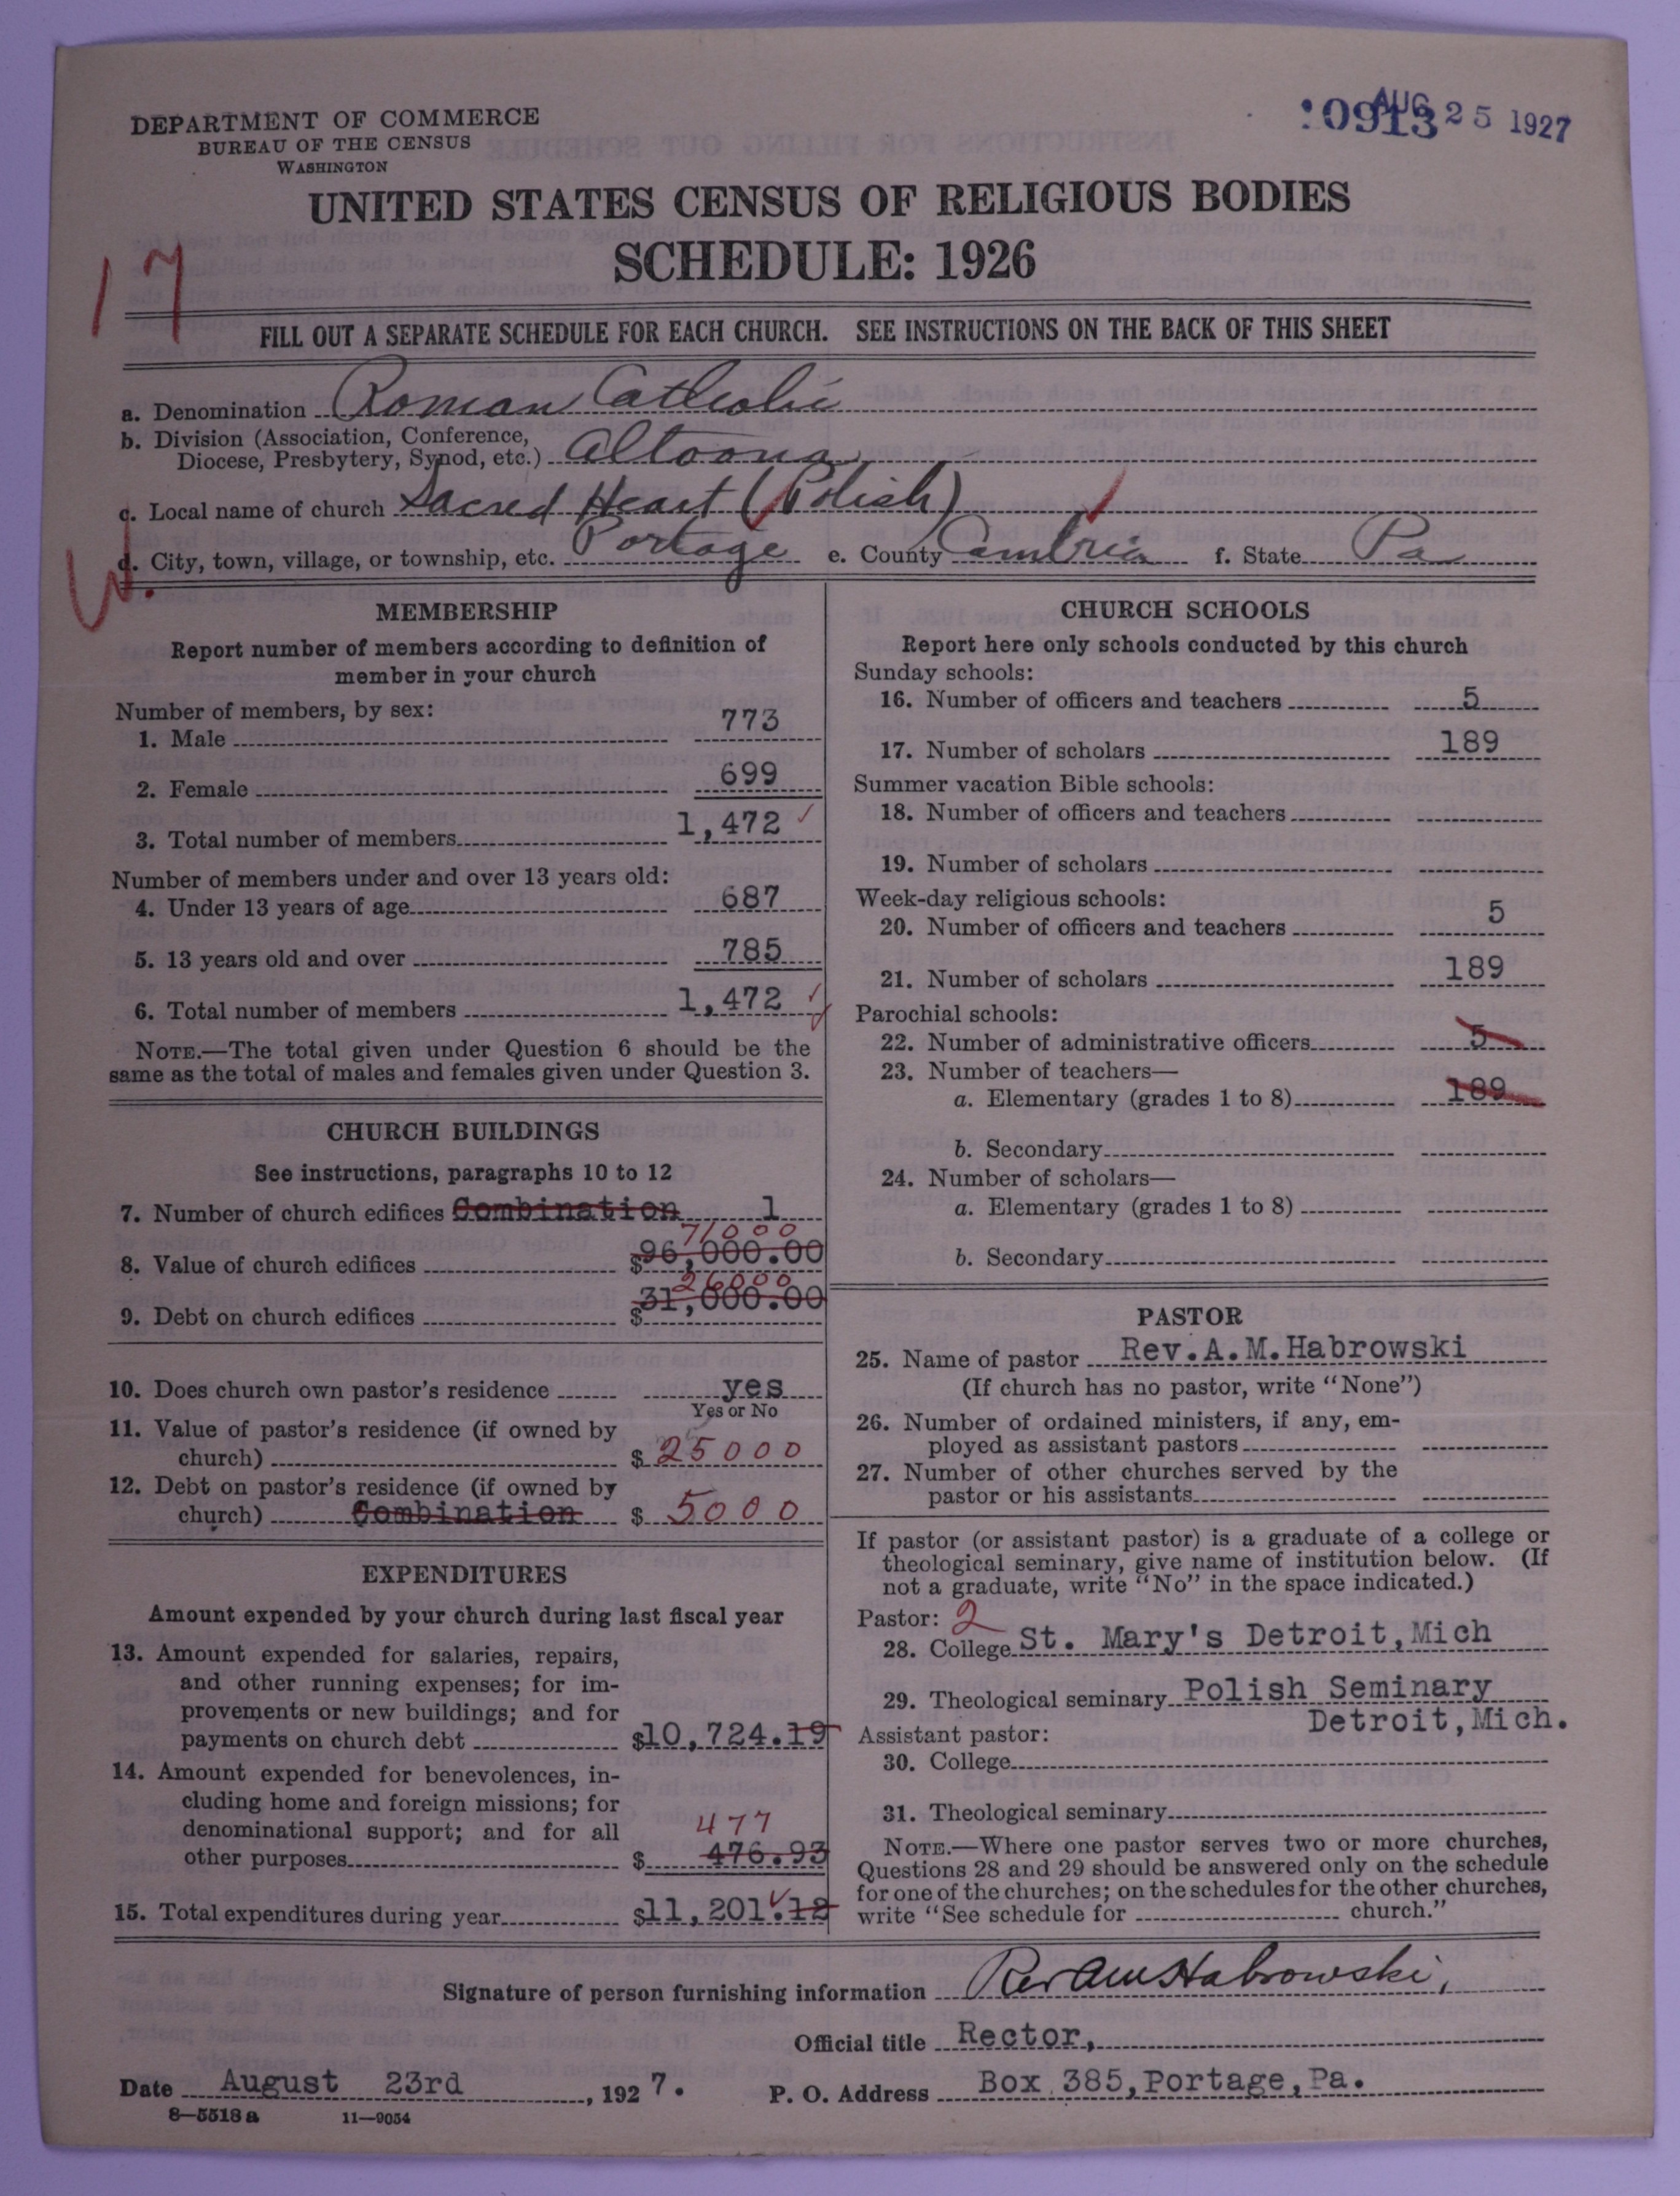 DEPARTMENT OF COMMERCE
BUREAU OF THE CENSUS
WASHINGTON
:0913 AUG 25 1927
UNITED STATES CENSUS OF RELIGIOUS BODIES
SCHEDULE: 1926
17
FILL OUT A SEPARATE SCHEDULE FOR EACH CHURCH. SEE INSTRUCTIONS ON THE BACK OF THIS SHEET
a. Denomination Roman Catholic
b. Division (Association, Conference,
Diocese, Presbytery, Synod, etc.) Altoona
c. Local name of church Sacred Heart (Polish)
d. City, town, village, or township, etc. Portage e. County Cambria f. State Pa
MEMBERSHIP
Report number of members according to definition of
member in your church
Number of members, by sex:
1. Male 773
2. Female 699
3. Total number of members 1,472
Number of members under and over 13 years old:
4. Under 13 years of age 687
5. 13 years old and over 785
6. Total number of members 1,472
NOTE.—The total given under Question 6 should be the
same as the total of males and females given under Question 3.
CHURCH BUILDINGS
See instructions, paragraphs 10 to 12
7. Number of church edifices Combination 1
71000
8. Value of church edifices $96,000.00
26000
9. Debt on church edifices $31,000.00
10. Does church own pastor's residence yes
Yes or No
11. Value of pastor's residence (if owned by
church) $25000
12. Debt on pastor's residence (if owned by
church) Combination $5000
EXPENDITURES
Amount expended by your church during last fiscal year
13. Amount expended for salaries, repairs,
and other running expenses; for im-
provements or new buildings; and for
payments on church debt $10,724.19
14. Amount expended for benevolences, in-
cluding home and foreign missions; for
denominational support; and for all 477
other purposes $476.93
15. Total expenditures during year $11,201.12
CHURCH SCHOOLS
Report here only schools conducted by this church
Sunday schools:
16. Number of officers and teachers 5
17. Number of scholars 189
Summer vacation Bible schools:
18. Number of officers and teachers
19. Number of scholars
Week-day religious schools:
20. Number of officers and teachers 5
21. Number of scholars 189
Parochial schools:
22. Number of administrative officers 5
23. Number of teachers—
a. Elementary (grades 1 to 8) 189
b. Secondary
24. Number of scholars—
a. Elementary (grades 1 to 8)
b. Secondary
PASTOR
25. Name of pastor Rev.A.M.Habrowski
(If church has no pastor, write "None")
26. Number of ordained ministers, if any, em-
ployed as assistant pastors
27. Number of other churches served by the
pastor or his assistants
If pastor (or assistant pastor) is a graduate of a college or
theological seminary, give name of institution below. (If
not a graduate, write "No" in the space indicated.)
Pastor: 2
28. College St. Mary's Detroit,Mich
29. Theological seminary Polish Seminary
Detroit,Mich.
Assistant pastor:
30. College
31. Theological seminary
NOTE.—Where one pastor serves two or more churches,
Questions 28 and 29 should be answered only on the schedule
for one of the churches; on the schedules for the other churches,
write "See schedule for church."
Signature of person furnishing information Rev AM Habrowski,
Official title Rector,
Date August 23rd, 1927. P. O. Address Box 385,Portage,Pa.
8—5518 a 11—9054